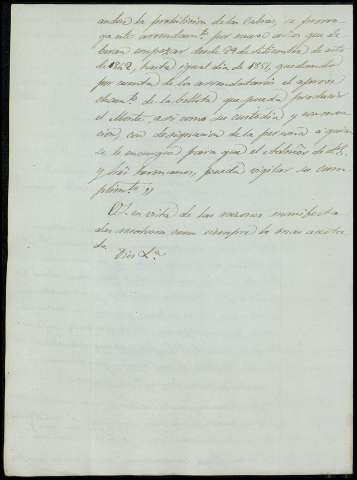 andose la prohibicion de las Cabras, se prorro-
gue este arrendam.to por nueve años que de-
beran empezar desde 29 de Setiembre de este
de 1842, hasta igual dia de 1851, quedando
por cuenta de los arrendatarios el aprove
chami.to de la bellota que pueda producir
el Monte, asi como su custodia y conserva
cion, con designacion de la persona a quien
se le encargue para que el Admor. de S.E.
y Sras hermanas, pueda vigilar su cum
plimi.to
V.E. en vista de las razones manifesta
das resolvera como siempre lo mas acerta
do.
Dios L.a